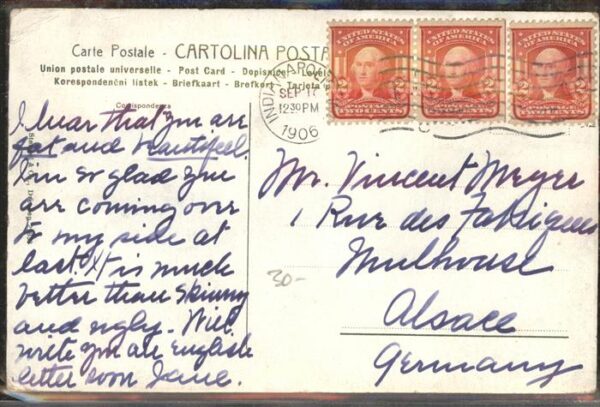 Carte Postale - CARTOLINA POSTA
Union postale universelle - Post Card - Dopisnice - Levelez
Korespondenční lístek - Briefkaart - Brefkort - Tarjeta p
UNITED STATES OF AMERICA
POSTAGE
2 TWO CENTS 2
UNITED STATES OF AMERICA
POSTAGE
2 TWO CENTS 2
UNITED STATES OF AMERICA
POSTAGE
2 TWO CENTS 2
INDIANAPOL
SEP 17
12 30 PM
1906
I hear that you are
fat and beautiful.
I'm so glad you
are coming over
to my side at
last. It is much
better than skinny
and ugly. Will
write you an English
letter soon Jane.
Mr. Vincent Meyer
1 Rue des Fabriques
Mulhouse
Alsace
Germany
30-